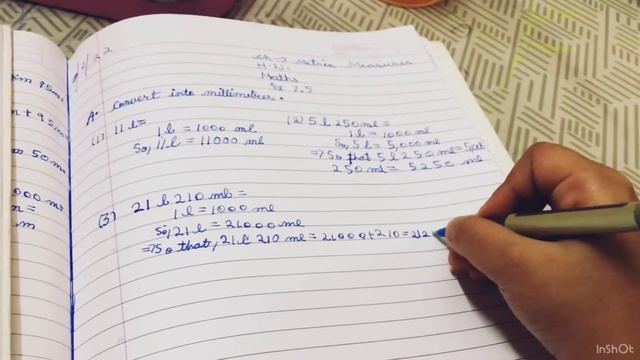 Km 95m
Ch → Metric Measures
H.W.
Maths
Ex 7.5
A. Convert into millimetres.
(1) 11 l =
1 l = 1000 ml
So, 11 l = 11000 ml
(2) 5 l 250 ml =
1 l = 1000 ml
So, 5 l = 5,000 ml
=> So that 5 l 250 ml =
250 ml = 5250 ml
(3) 21 l 210 ml =
1 l = 1000 ml
So, 21 l = 21000 ml
=> So that, 21 l 210 ml = 21000 + 210 = 212
n + 95m
= 50m
000 m
m =
m
InShOt